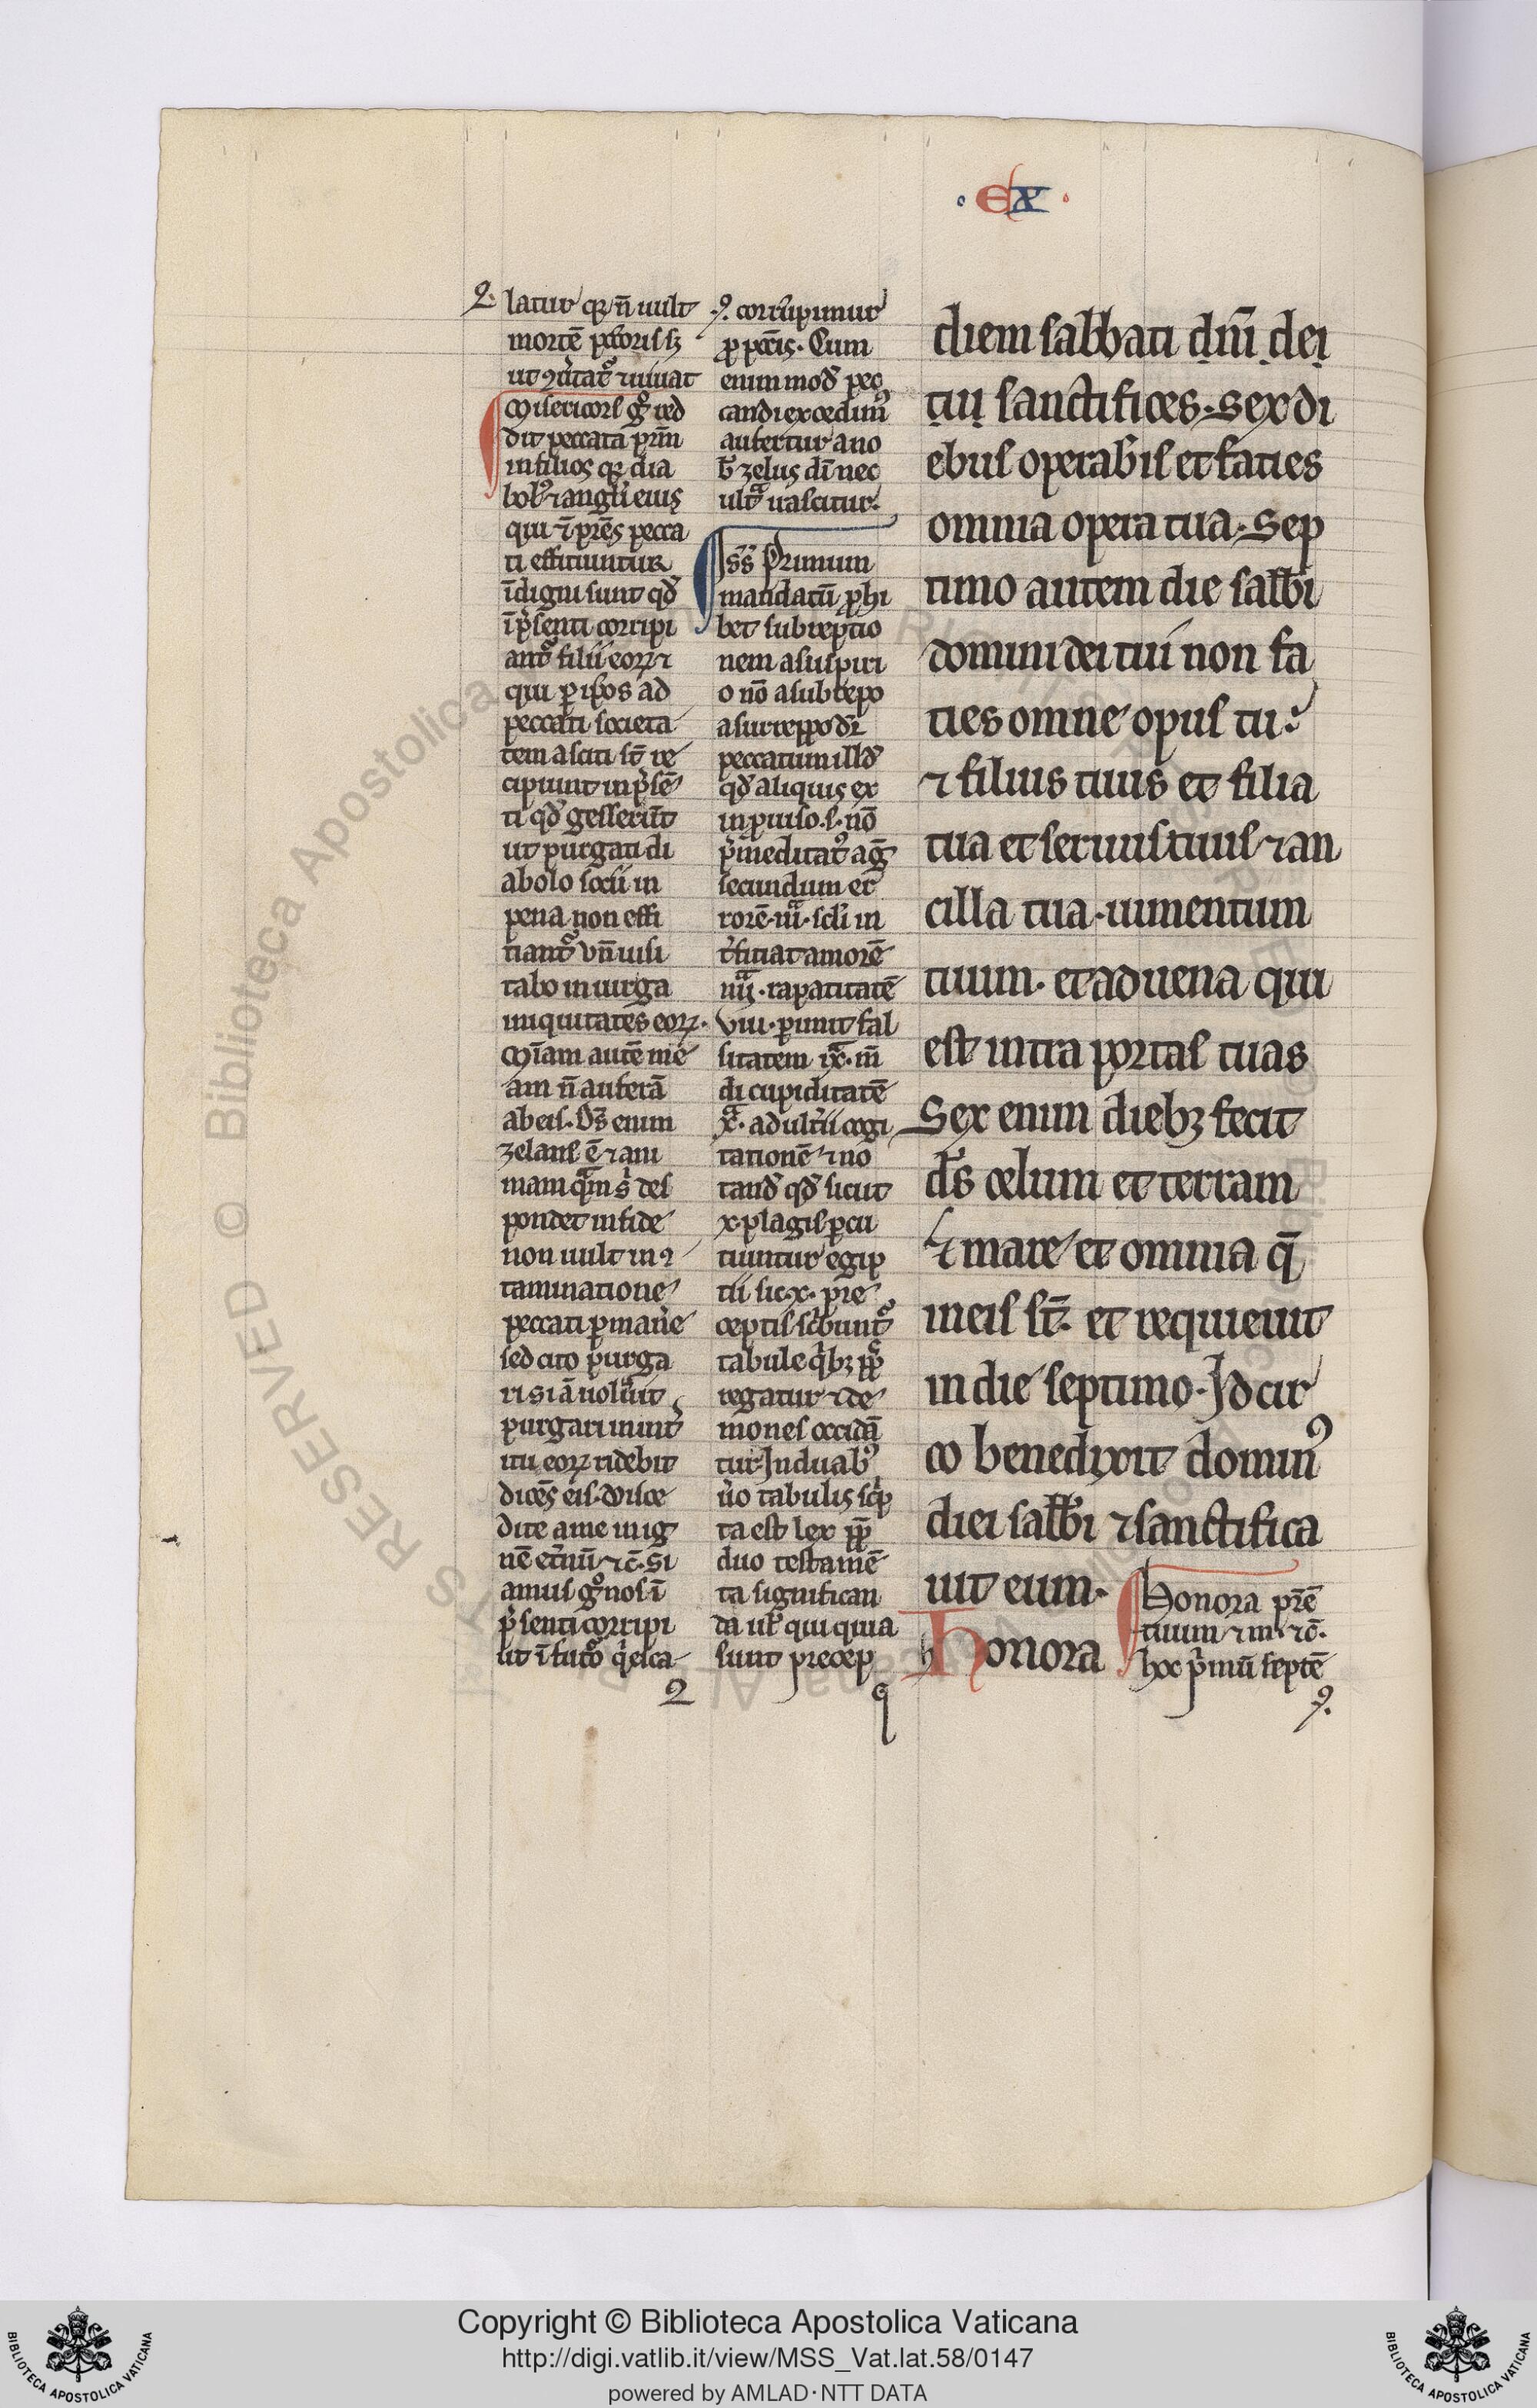 · EX ·
latur qꝛ n̄ uult
mortē pc̄toris sꝫ
ut ꝯu̾tat᷒ ⁊ uiuat
Misericors gͦ red
dit peccata pr̄m
in filios qꝛ dia
bolꝰ ⁊ angl̾i eius
qui ī pr̄es pecca
ti efficiuntur
īdigni sunt qd̾
īp̾senti corripi
ant᷒ filii eoꝝ ⁊
qui ꝑ ip̄os ad
peccati societa
tem asciti st̄ re
cipiunt in p̾sē
ti qd̾ gesserūt
ut purgati di
abolo socii in
pena non effi
tiant᷒ vn̄ uisi
tabo in uirga
iniquitates eoꝝ.
Mīam autē me
am n̄ auferā
ab eis. Ds̄ enim
zelans ē ⁊ ani
mam
pondet in fide
non uult in ꝯ
taminatione
peccati ꝑman̾e
sed cito purga
ri si ā nolu̾it
purgari in int̾
itu eoꝝ ridebit
dicēs eis. Disce
dite a me in ig
nē et̾nū ⁊ c̄. Si
amus gͦ nos ī
p̾senti corripi
ut ī futo᷒ q̾esca
corrūpimur
ꝓ pc̄cis. Cum
enim mod̾ pec
candi excedimꝰ
aufertur a no
b̾ zelus dī nec
ultᵃ uascitur.
Primum
mandatū ꝓhi
bet subreptio
nem a suspiri
o nō a subrepo
a surrepo dr̄
peccatum illd̾
qd̾ aliquis ex
inꝓuiso .s. nō
p̾meditatꝰ ag̾
secundum er
rorē. iiiᵃ. scl̾i in
t̾ficiat amorē
.rapacitatē
viii. ꝑimit fal
sitatem ixᵃ. m̄
di cupiditatē
xᵃ. adult̾ii cogi
tationē ⁊ no
tand̾ qd̾ sicut
x. plagis ꝑcu
tiuntur egip
tii sic .x. pre
ceptis sc̾bunt᷒
tabule q̾bꝫ
regatur ⁊ de
mones occidā
tur In duabꝰ
u̾o tabulis sc̾p
ta est lex ꝓp̄
duo testamē
ta significan
da ut̾ qui quia
sunt precep
diem sabbati dn̄i dei
tui sanctifices. Sex di
ebus operabis et faties
omnia opera tua. Sep
timo autem die sabb̾i
domini dei tui non fa
ties omne opus tuꝫ
⁊ filius tuus et filia
tua et seruus tuus ⁊ an
cilla tua. iumentum
tuum. et aduena qui
est intra portas tuas
Sex enim diebꝫ fecit
ds̄ celum et terram
⁊ mare et omnia q̄
in eis st̄. et requieuit
in die septimo. Idcir
co benedixit dominꝰ
diei sabb̾i ⁊ sanctifica
uit eum.
Honora
Honora pr̄ē
tuum ⁊ m̄ ⁊ c̄.
hoc p̾mū septē
Copyright © Biblioteca Apostolica Vaticana
http://digi.vatlib.it/view/MSS_Vat.lat.58/0147
powered by AMLAD·NTT DATA